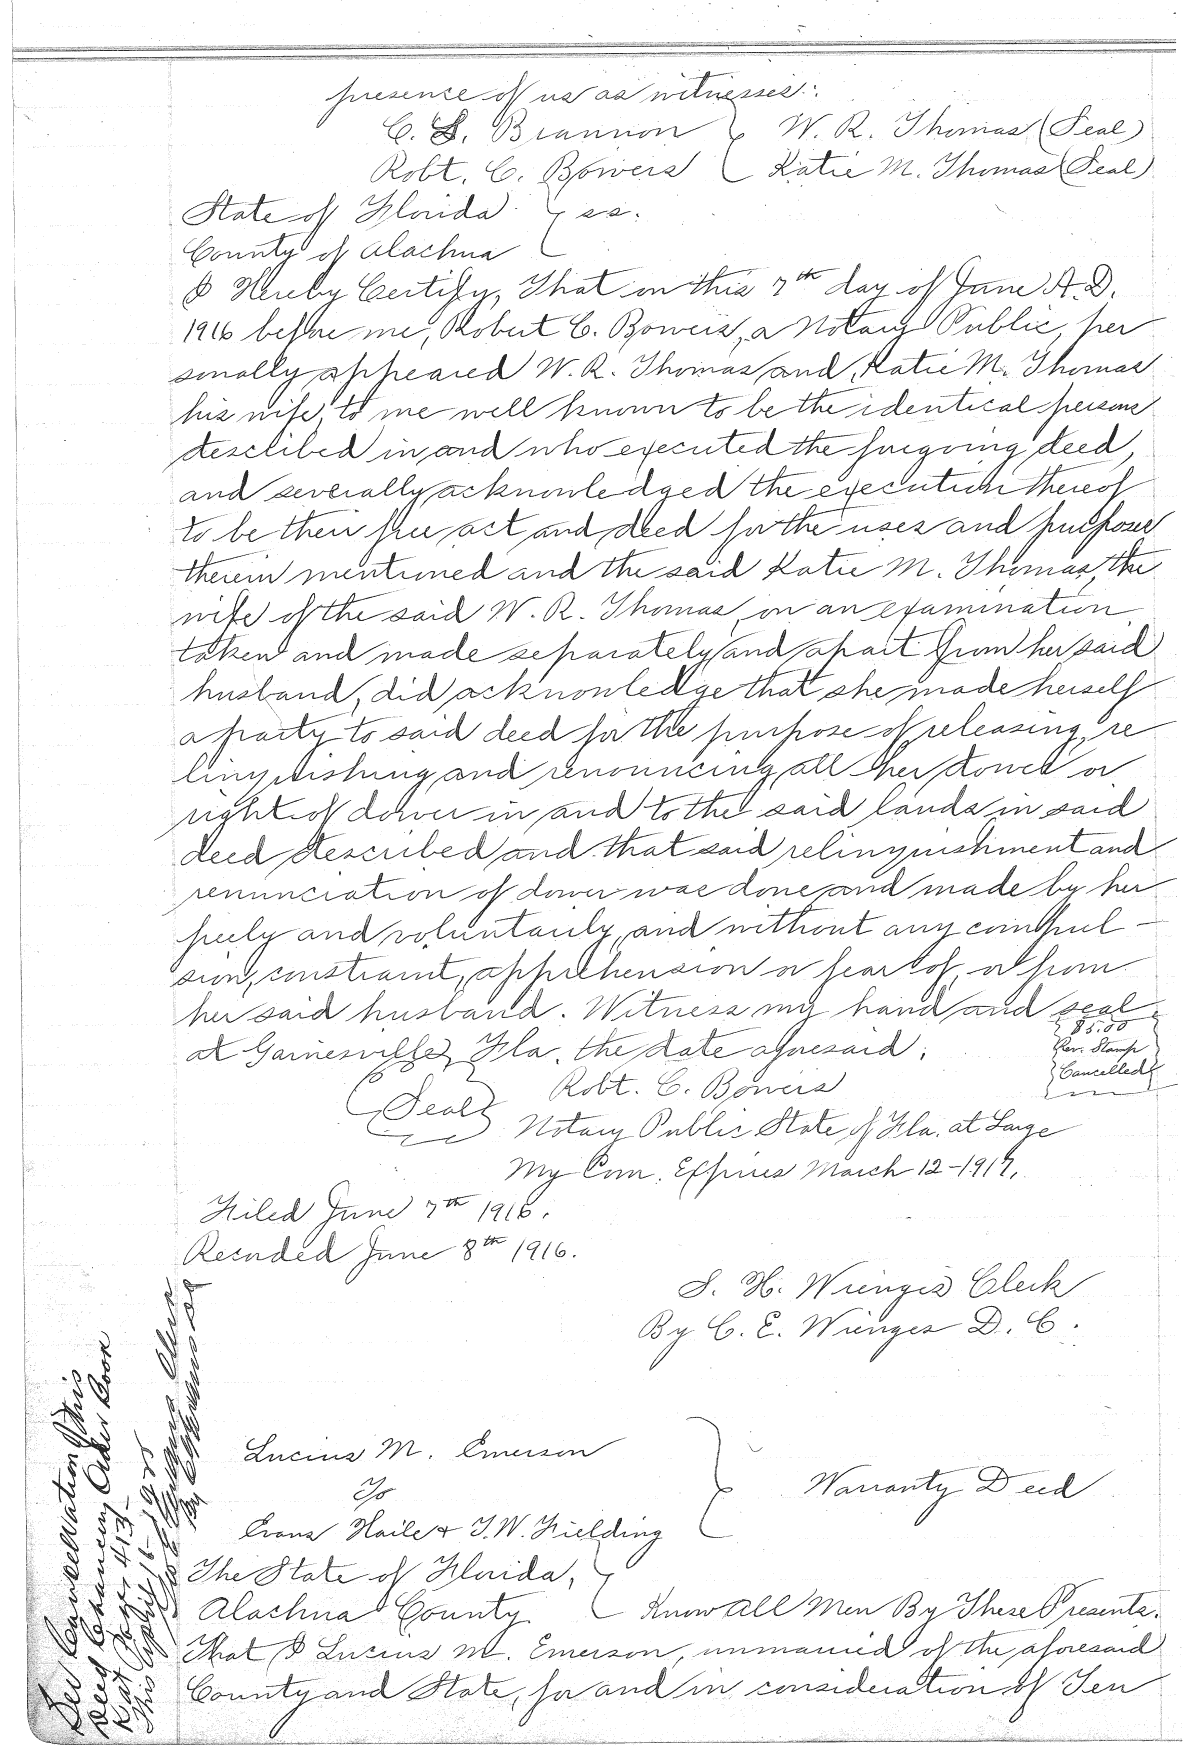 presence of us as witnesses:
C. S. Brannon W. R. Thomas (Seal)
Robt. C. Bowers Katie M. Thomas (Seal)
State of Florida ss.
County of Alachua
I Hereby Certify, That on this 7th day of June A.D.
1916 before me, Robert C. Bowers, a Notary Public, per
sonally appeared W. R. Thomas and Katie M. Thomas
his wife, to me well known to be the identical persons
described in and who executed the foregoing deed,
and severally acknowledged the execution thereof
to be their free act and deed for the uses and purposes
therein mentioned and the said Katie M. Thomas, the
wife of the said W. R. Thomas, on an examination
taken and made separately and apart from her said
husband, did acknowledge that she made herself
a party to said deed for the purpose of releasing, re
linquishing and renouncing all her dower or
right of dower in and to the said lands in said
deed described and that said relinquishment and
renunciation of dower was done and made by her
freely and voluntarily, and without any compul-
sion, constraint, apprehension or fear of, or from
her said husband. Witness my hand and seal
at Gainesville, Fla. the date aforesaid.
$5.00
Rev. Stamp
Cancelled
(Seal) Robt. C. Bowers
Notary Public State of Fla. at Large
My Com. Expires March 12-1917.
Filed June 7th 1916.
Recorded June 8th 1916.
S. H. Wienges Clerk
By C. E. Wienges D. C.
Lucius M. Emerson
To Warranty Deed
Evans Haile & T. W. Fielding
The State of Florida,
Alachua County Know All Men By These Presents.
That I Lucius M. Emerson, unmarried of the aforesaid
County and State, for and in consideration of Ten
See Cancellation of this
Deed Chancery Order Book
K at Page 413
This April 16